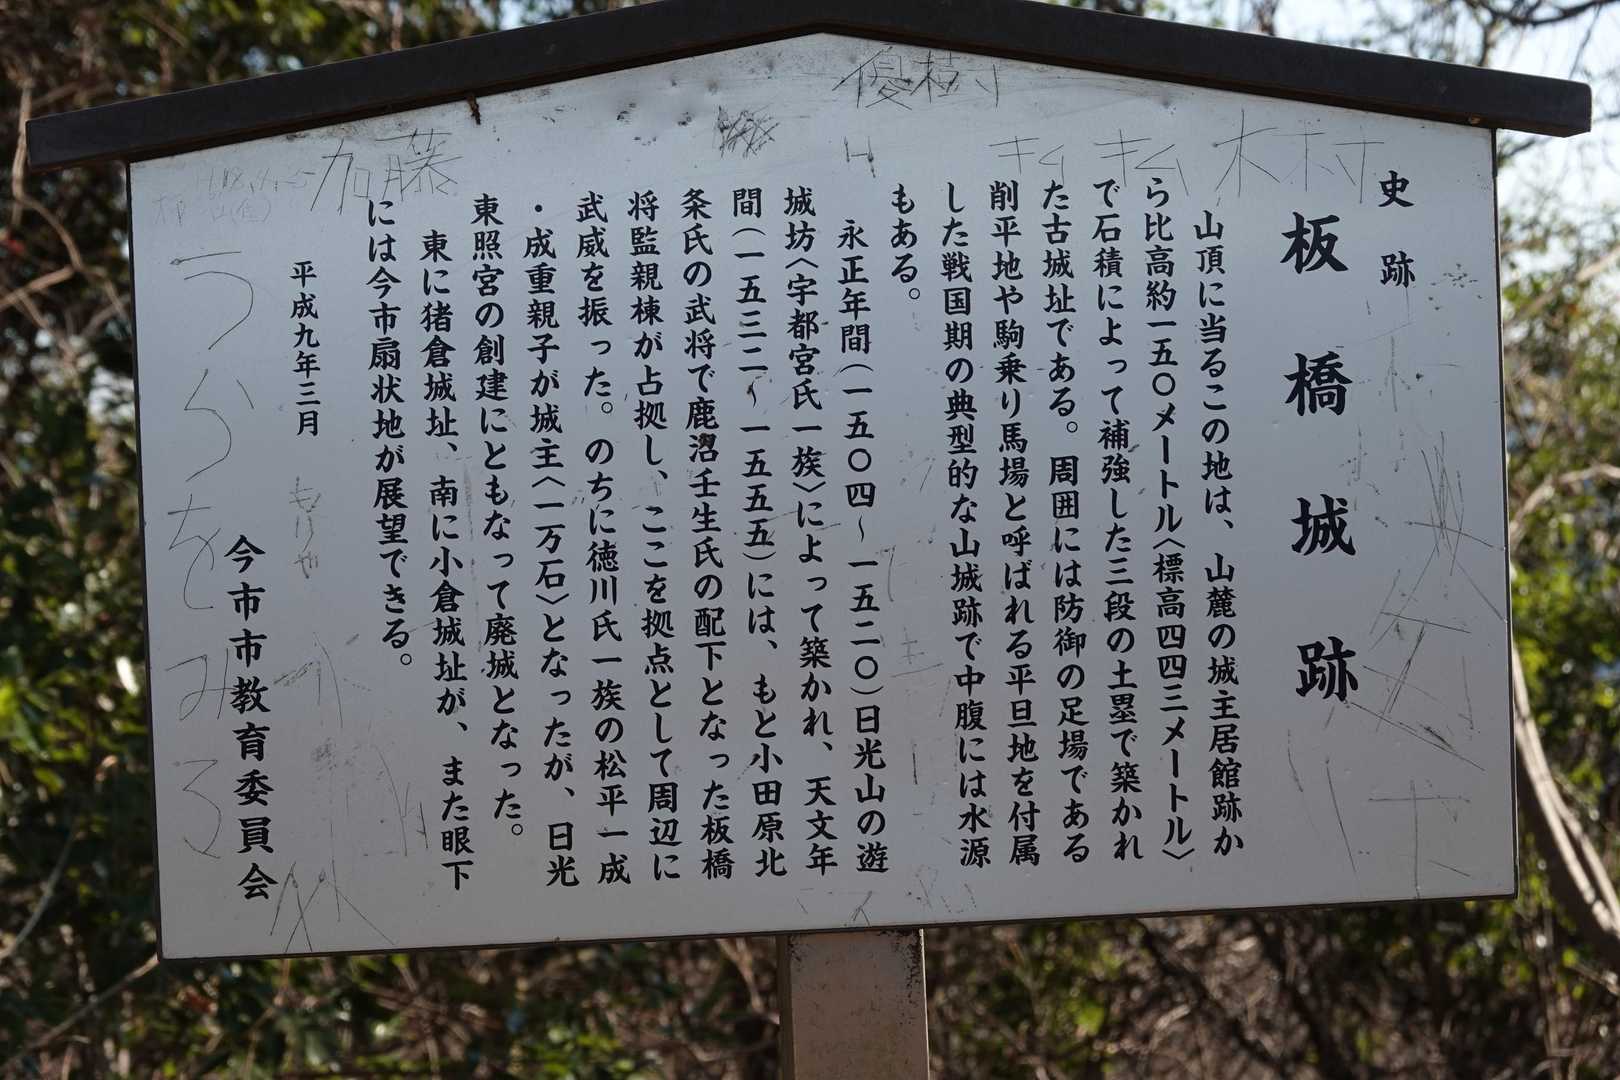 史跡
板橋城跡
山頂に当るこの地は、山麓の城主居館跡か
ら比高約一五〇メートル〈標高四四三メートル〉
で石積によって補強した三段の土塁で築かれ
た古城址である。周囲には防御の足場である
削平地や駒乗り馬場と呼ばれる平旦地を付属
した戦国期の典型的な山城跡で中腹には水源
もある。
永正年間(一五〇四〜一五二〇)日光山の遊
城坊〈宇都宮氏一族〉によって築かれ、天文年
間(一五三二〜一五五五)には、もと小田原北
条氏の武将で鹿沼壬生氏の配下となった板橋
将監親棟が占拠し、ここを拠点として周辺に
武威を振った。のちに徳川氏一族の松平一成
・成重親子が城主〈一万石〉となったが、日光
東照宮の創建にともなって廃城となった。
東に猪倉城址、南に小倉城址が、また眼下
には今市扇状地が展望できる。
平成九年三月
今市市教育委員会
木村
加藤
優樹
うらをみろ